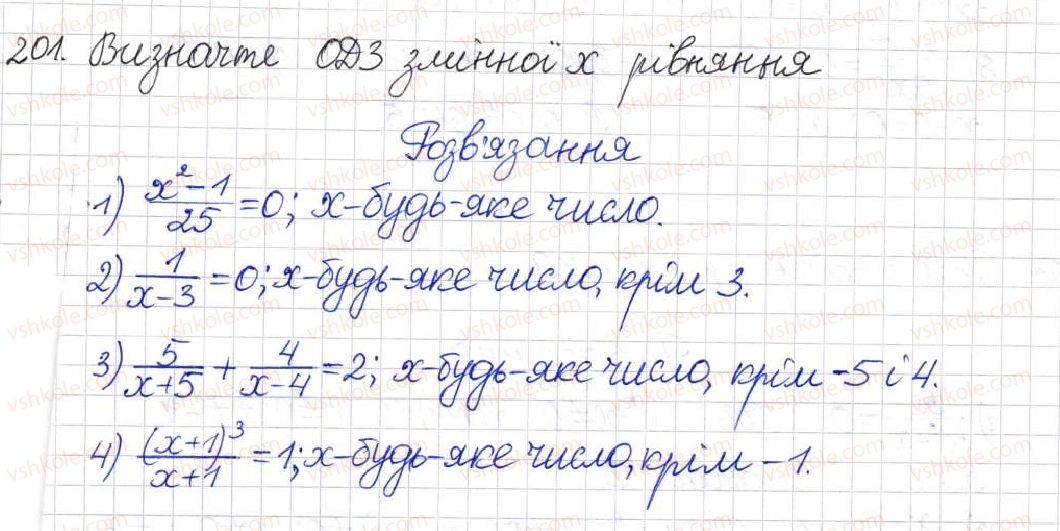 201. Визначте ОДЗ змінної x рівняння
Розв'язання
1) (x² - 1)/25 = 0; x - будь-яке число.
2) 1/(x - 3) = 0; x - будь-яке число, крім 3.
3) 5/(x + 5) + 4/(x - 4) = 2; x - будь-яке число, крім -5 і 4.
4) (x + 1)³/(x + 1) = 1; x - будь-яке число, крім -1.
vshkole.com